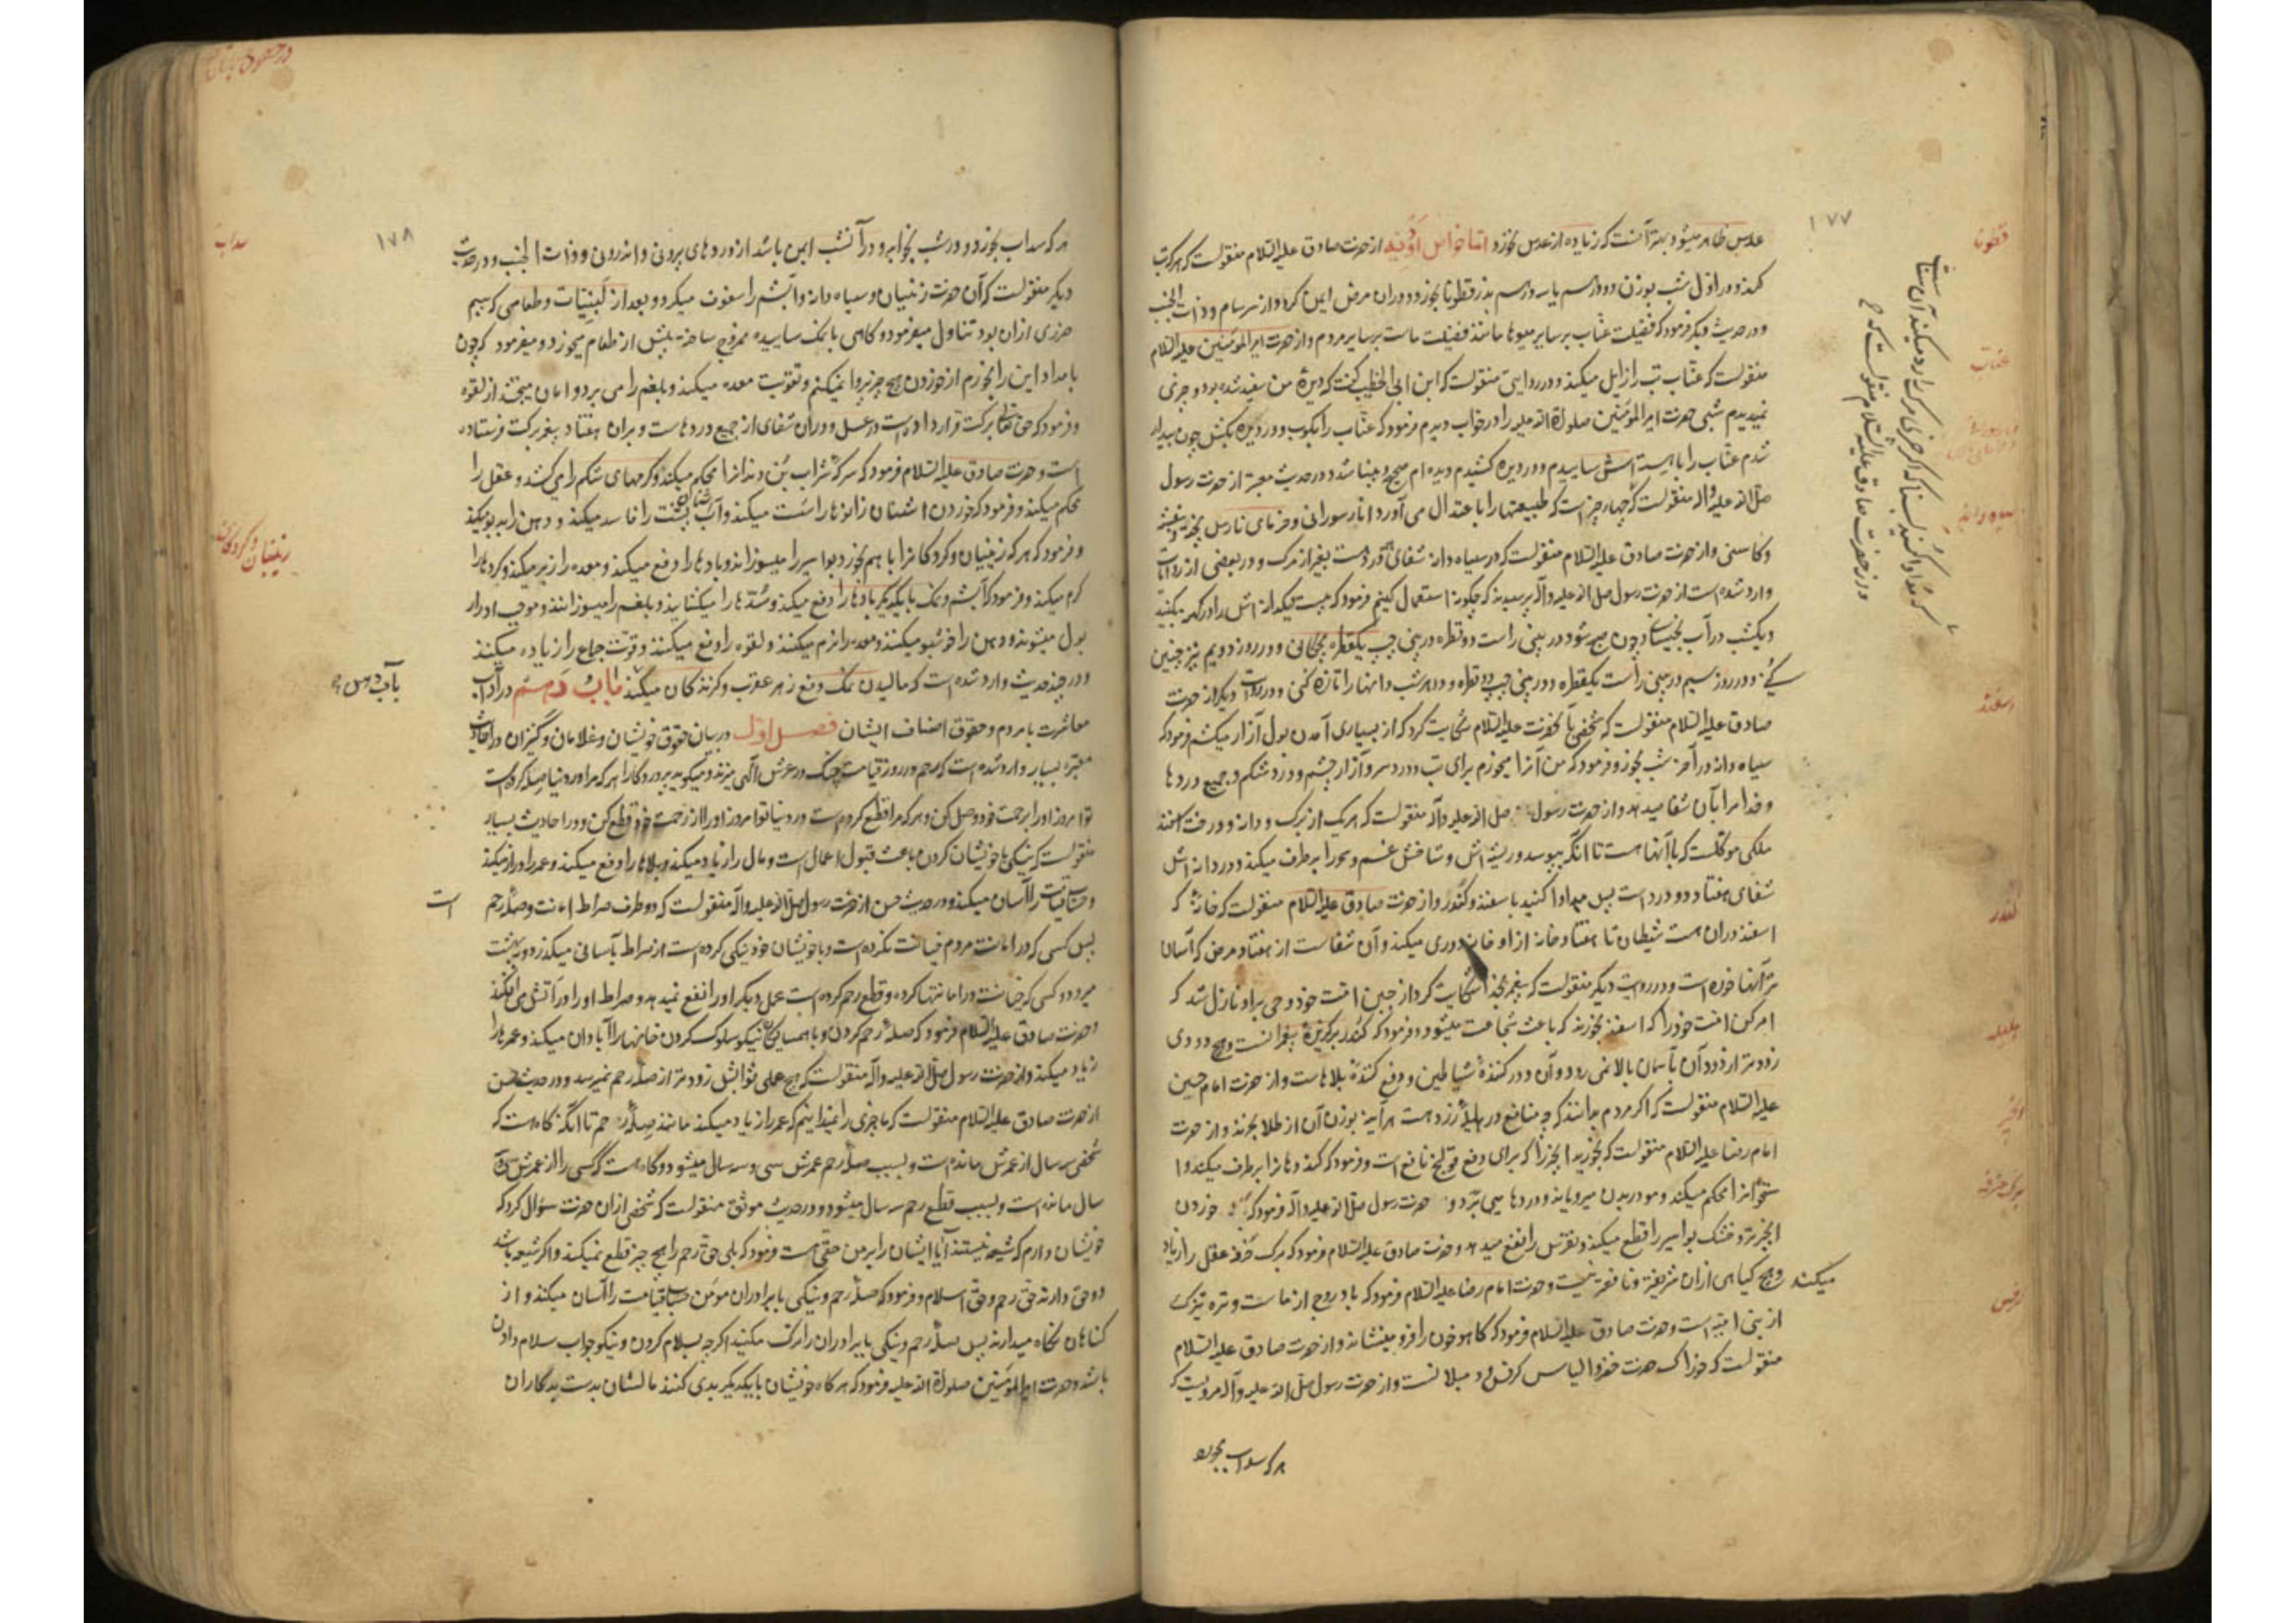 ۱۷۷
قطونا
عدس ظاهر میشود بهتر آنست که زیاده از عدس نخورد اما خواص ادویه از حضرت صادق علیه السلام منقولست که هرکه تب
کند و در اول شب بوزن دو درهم یا سه درهم بذر قطونا بخورد در آن مرض ایمن گردد از سرسام و ذات الجنب
و در حدیث دیگر فرمود که فضیلت عناب بر سایر میوها مانند فضیلت ماست بر سایر مردم و از حضرت امیر المؤمنین علیه السلام
عناب
منقولست که عناب تب را زایل میکند و در روایتی منقولست که ابن ابی الخطیب گفت که دیده من سفید شده بود و چیزی
نمیدیدم شبی حضرت امیر المؤمنین صلوة الله علیه را در خواب دیدم فرمود که عناب را بکوب و در دیده بکش چون بیدار
شدم عناب را با هسته اش ساییدم و در دیده کشیدم دیده ام صحیح و بینا شد و در حدیث معتبر از حضرت رسول
صلی الله علیه و اله منقولست که چهار چیز است که طبیعتها را با عتدال می آورد انار سورانی و خرمای نارس پخته و بنفشه
و کاسنی و از حضرت صادق علیه السلام منقولست که در سیاه دانه شفای هر درد هست بغیر از مرک و در بعضی از روایات
سیاه دانه
وارد شده است از حضرت رسول صلی الله علیه و آله پرسیدند که چگونه استعمال کنیم فرمود که بیست و یکدانه اش را در کهنه بکنید
و یکشب در آب بخیسانید چون صبح شود در بینی راست دو قطره در بینی چپ یکقطره بچکانی و در روز دویم نیز چنین
کنی و در روز سیم در بینی راست یکقطره و در بینی چپ دو قطره و در هر شب دانها را تازه کنی و در روایت دیگر از حضرت
صادق علیه السلام منقولست که شخصی بآنحضرت علیه السلام شکایت کرد که از بسیاری آمدن بول آزار میکشم فرمود که
سیاه دانه در آخر شب بخور و فرمود که من آنرا میخورم برای تب و درد سر و آزار چشم و درد شکم و جمیع دردها
و خدا مرا بآن شفا میدهد و از حضرت رسول صلی الله علیه و آله منقولست که هر یک از برک و دانه و درخت اسفند
اسفند
ملکی موکلست که با آنها هست تا آنکه بپوسد و ریشه اش و شاخش غم و سحر را برطرف میکند و در دانه اش
شفای هفتاد و دو درد است پس مداوا کنید باسفند و کندر و از حضرت صادق علیه السلام منقولست که خانه که
اسفند در آن هست شیطان تا هفتاد خانه از او دوری میکند و آن شفاست از هفتاد مرض که آسان
کندر
تر آنها خوره است و در روایت دیگر منقولست که پیغمبری بخدا شکایت کرد از جبن امت خود وحی بر او نازل شد که
امر کن امت خود را که اسفند بخورند که باعث شجاعت میشود و فرمود که کندر برگزیده پیغمبرانست و هیچ دودی
زودتر از دود آن بآسمان بالا نمی رود و آن دور کننده شیاطین و دفع کننده بلاهاست و از حضرت امام حسین
هلیله
علیه السلام منقولست که اگر مردم بدانند که چه منافع در هلیله زرد هست هر آینه بوزن آن از طلا بخرند و از حضرت
انجیر
امام رضا علیه السلام منقولست که بخورید انجیر را که برای دفع قولنج نافع است و فرمود که گند دهان را برطرف میکند و ا
ستخوانرا محکم میکند و مو در بدن میرویاند و دردها می برد و حضرت رسول صلی الله علیه و آله فرمود که خوردن
انجیر تر و خشک بواسیر را قطع میکند و نقرس را نفع میدهد و حضرت صادق علیه السلام فرمود که برک خرفه عقل را زیاد
برک خرفه
میکند و هیچ گیاهی از آن شریفتر و نافعتر نیست و حضرت امام رضا علیه السلام فرمود که بادروج از ماست و تره تیزک
از بنی امیه است و حضرت صادق علیه السلام فرمود که کاهو خون را فرو مینشاند و از حضرت صادق علیه السلام
کرفس
منقولست که خوراک حضرت خضر و الیاس کرفس و دنبلان است و از حضرت رسول صلی الله علیه و آله مرویست که
هرکه سداب بخورد
که مداوا کنید بسنا که اگر چیزی مرک را رد میکند آن سناست
و از حضرت صادق علیه السلام منقولست که
۱۷۸
سداب
هرکه سداب بخورد و در شب بخوابد در آن شب ایمن باشد از دردهای برونی و اندرونی و ذات الجنب و در حدیث
دیگر منقولست که آن حضرت زنیان و سیاه دانه و آبشم را سفوف میکرد و بعد از لبنیات و طعامی که بیم
ضرری از آن بود تناول میفرمود و گاهی با نمک ساییده ممزوج ساخته پیش از طعام میخورد و میفرمود که چون
بامداد این را بخورم از خوردن هیچ چیز پروا نمیکنم و تقویت معده میکند و بلغم را می برد و امان میبخشد از لقوه
و فرمود که حق تعالی برکت قرار داده است در عسل و در آن شفای از جمیع دردهاست و بر آن هفتاد پیغمبر برکت فرستاده
است و حضرت صادق علیه السلام فرمود که سرکه شراب بُن دندانرا محکم میکند و کرمهای شکم را می کشد و عقل را
محکم میکند و فرمود که خوردن اشنان زانوها را سست میکند و آب پشت را فاسد میکند و دهن را بدبو میکند
و فرمود که هر که زنیان و گردکان را با هم بخورد بواسیر را میسوزاند و بادها را دفع میکند و معده را نرم میکند و گردها را
زنیان و گردکان
گرم میکند و فرمود که آبشم و نمک با یکدیگر بادها را دفع میکند و سُدّها را میکشاید و بلغم را میسوزانند و موجب ادرار
بول میشوند و دهن را خوشبو میکنند و معده را نرم میکنند و لقوه را دفع میکنند و قوت جماع را زیاده میکنند
و در چند حدیث وارد شده است که مالیدن نمک دفع زهر عقرب و گزندگان میکند باب دهم در آداب
باب دهم
معاشرت با مردم و حقوق اصناف ایشان فصل اول در بیان حقوق خویشان و غلامان و کنیزان در احادیث
معتبره بسیار وارد شده است که رحم در روز قیامت چنگ در عرش الهی میزند و میگوید پروردگارا هر که مرا در دنیا صله کرده است
تو امروز او را برحمت خود وصل کن و هر که مرا قطع کرده است در دنیا تو امروز او را از رحمت خود قطع کن و در احادیث بسیار
منقولست که نیکی با خویشان کردن باعث قبول اعمال است و مال را زیاد میکند و بلاها را دفع میکند و عمر را دراز میکند
و حساب قیامت را آسان میکند و در حدیث حسن از حضرت رسول صلی الله علیه و آله منقولست که دو طرف صراط امانت و صله رحم
است
پس کسی که در امانت مردم خیانت نکرده است و با خویشان خود نیکی کرده است از صراط بآسانی میگذرد و ببهشت
میرود و کسی که خیانت در امانتها کرده و قطع رحم کرده است عمل دیگر او را نفع نمیدهد و صراط او را در آتش می افکند
و حضرت صادق علیه السلام فرمود که صله رحم کردن و با همسایگان نیکو سلوک کردن خانها را آبادان میکند و عمرها را
زیاد میکند و از حضرت رسول صلی الله علیه و آله منقولست که هیچ عملی ثوابش زودتر از صله رحم نمیرسد و در حدیث حسن
از حضرت صادق علیه السلام منقولست که ما چیزی را نمیدانیم که عمر را زیاد میکند مانند صله رحم تا آنکه گاه هست که
شخصی سه سال از عمرش مانده است و بسبب صله رحم عمرش سی و سه سال میشود و گاه هست که کسی را از عمرش سی و سه
سال مانده است و بسبب قطع رحم سه سال میشود و در حدیث موثق منقولست که شخصی از آن حضرت سؤال کرد که
خویشان دارم که شیعه نیستند آیا ایشان را بر من حقی هست فرمود که بلی حق رحم را هیچ چیز قطع نمیکند و اگر شیعه باشد
دو حق دارند حق رحم و حق اسلام و فرمود که صله رحم و نیکی با برادران مؤمن حساب قیامت را آسان میکند و از
گناهان نگاه میدارند پس صله رحم و نیکی با برادران را ترک مکنید اگر چه بسلام کردن و نیکو جواب سلام دادن
باشد و حضرت امیر المؤمنین صلوة الله علیه فرمود که هر گاه خویشان با یکدیگر بدی کنند مالشان بدست بدکاران